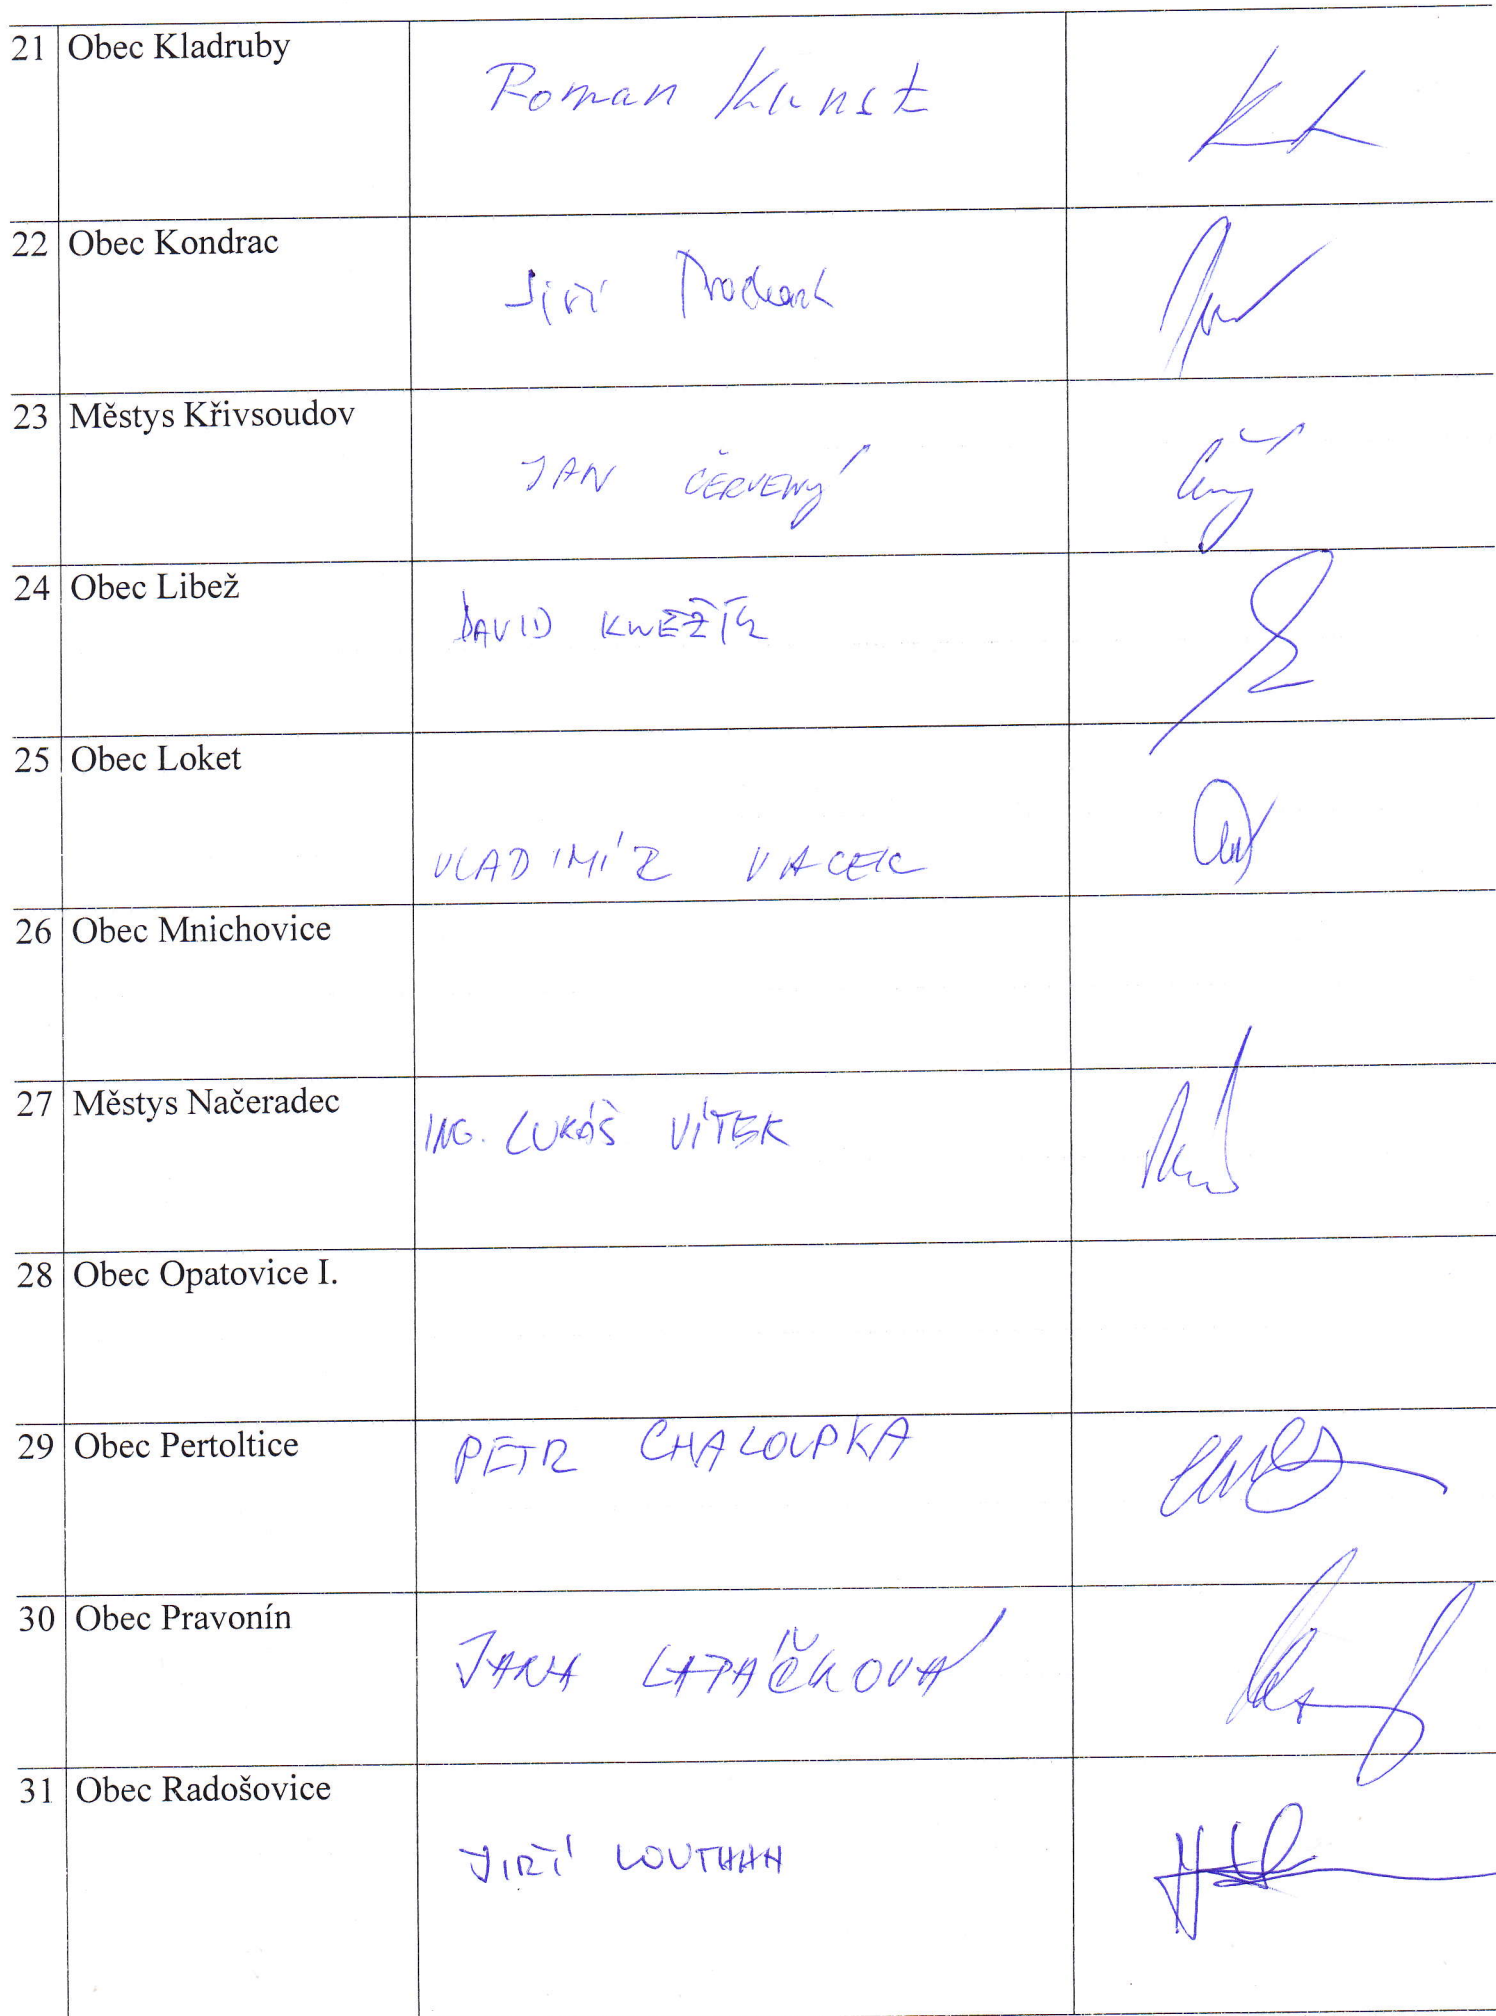 21 Obec Kladruby Roman Kunst
22 Obec Kondrac Jiří
23 Městys Křivsoudov JAN ČERVENÝ
24 Obec Libež DAVID KNĚŽÍK
25 Obec Loket VLADIMÍR VACEK
26 Obec Mnichovice
27 Městys Načeradec ING. LUKÁŠ VÍTEK
28 Obec Opatovice I.
29 Obec Pertoltice PETR CHALOUPKA
30 Obec Pravonín JANA LAPÁČKOVÁ
31 Obec Radošovice JIŘÍ LOUTHAN